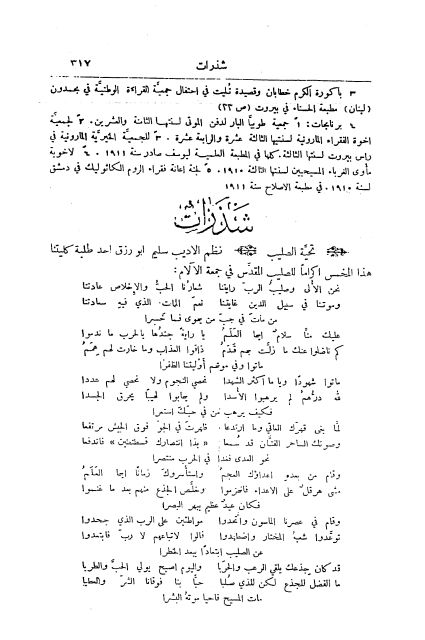 شذرات ٣١٧
٣ باكورة الكرم خطابان وقصيدة تُليت في احتفال جمعية القراءة الوطنية في بحمدون
(لبنان) مطبعة الحسناء في بيروت (ص ٢٢)
٤ برنامجات: ١ً جمعية طوبيّا البار لدفن الموتى لسنتها الثامنة والعشرين. ٢ً لجمعية
اخوة الفقراء المارونية لسنتيها الثالثة عشرة والرابعة عشرة. ٣ً للجمعية الخيريّة المارونية في
راس بيروت لسنتها الثالثة. كلها في المطبعة العلمية ليوسف صادر سنة ١٩١١. ٤ً لاخوية
مأوى الغرباء المسيحيين لسنتها الثالثة ١٩١٠. ٥ً لجنة اعانة فقراء الروم الكاثوليك في دمشق
لسنة ١٩١٠. في مطبعة الاصلاح سنة ١٩١١
شذرات
تحيَّة الصليب نظم الاديب سليم ابو رزق احد طلبة كليتنا
هذا المخمس اكراماً للصليب المقدَّس في جمعة الآلام:
نحن الأُلى وصليبُ الربّ رايتنا شعارُنا الحبُّ والإخلاص عادتنا
وموتنا في سبيل الدين غايتنا نعم المات الذي فيهِ سعادتنا
من مات في حبّ من يهوى فما خسرا
عليك منَّا سلامٌ ايها العَلَمُ يا رايةً جندُها بالحرب ما ندموا
كم ناضلوا عنك ما زلَّت بهم قدَمُ ذاقوا العذاب وما خارت لهم هِمَمُ
ماتوا وفي موتهم أوليتَنا الظفرا
ماتوا شهودًا ويا ما أكثرَ الشهدا نحصي النجوم ولا نحصي لهم عددا
لله درُّهمُ لم يرهبوا الأسدا ولم يهابوا لهيبًا يحرق الجسدا
فكيف يرهب من في حبّك استعرا
لمَّا بغى قهرك العاتي وما ارتدعا ظهرتَ في الجوّ فوق الجيش مرتفعا
وصوتُك الساحر الفتَّان قد سُمعا « بذا انتصارك قسطنطين » فاندفعا
نحو العدى فغدا في الحرب منتصرا
وقام من بعدهِ إعدادك العجمُ واستأسروك زمانًا ايها العَلَمُ
مشى هرقلٌ على الاعداء فانهزموا وخلَّص الجذع منهم بعد ما غنموا
فكان عيدٌ عظيم يبهر البصرا
وقام في عصرنا الماسون واتَّحدوا مواطئين على الرب الذي جحدوا
توعَّدوا شعبهُ المختار واضطهدوا قالوا لاتباعهم لا ربّ فابتعدوا
عن الصليب ابتعادًا يبعد الخطرا
قد كان جذعك يلقي الرعب والحرَبا واليوم اصبح يولي الحبَّ والطربا
ما الفضل للجذع لكن للذي صُلبا حبًّا بنا فوقانا الشرّ والعطبا
مات المسيح فأحيا موتهُ البشرا